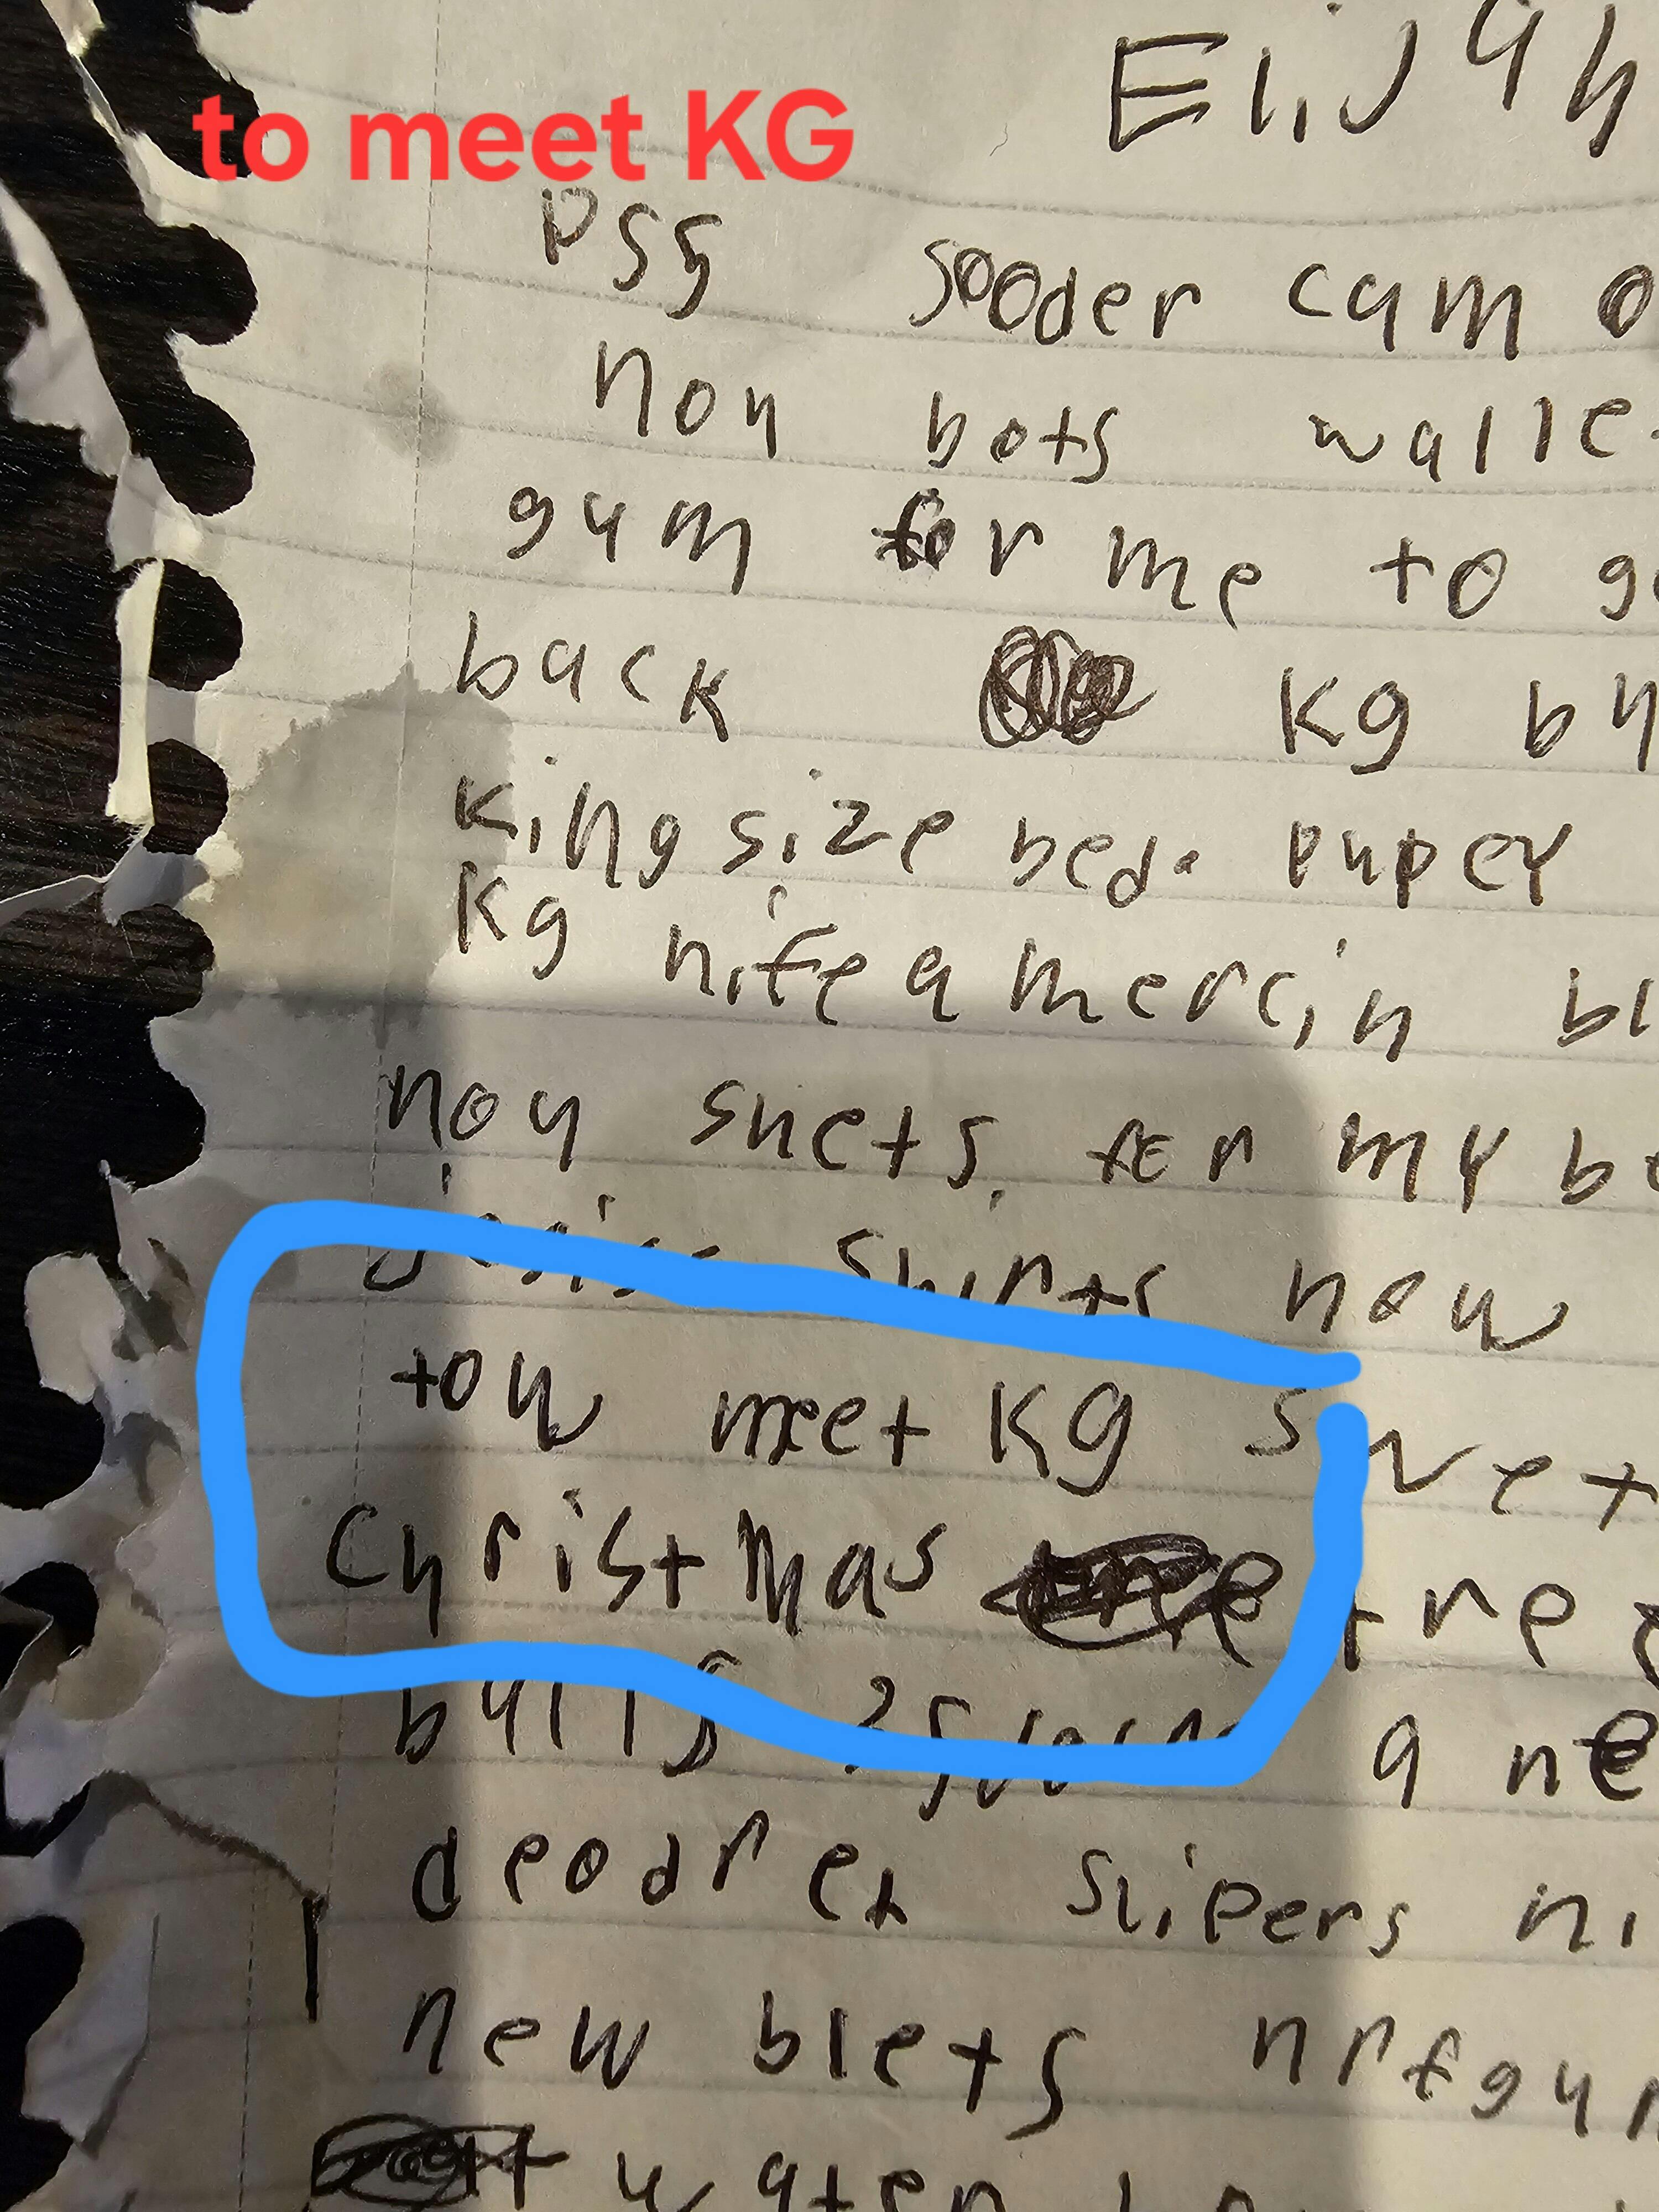 Elijah
to meet KG
PS5 sooder cam
noy bots walle
gum for me to
back Kg by
King size bed. puper
Kg nife amercin bl
noy shets for my
shirts now
tow meet Kg swet
Christmas tree
balls a ne
deodret slipers ni
new blets nrfgun
water